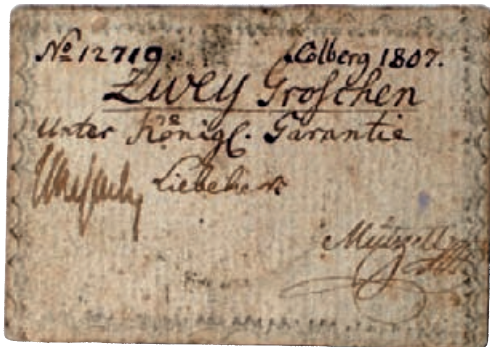 No 12719. Colberg 1807.
Zwey Groschen
unter Königl. Garantie
Liebeherr